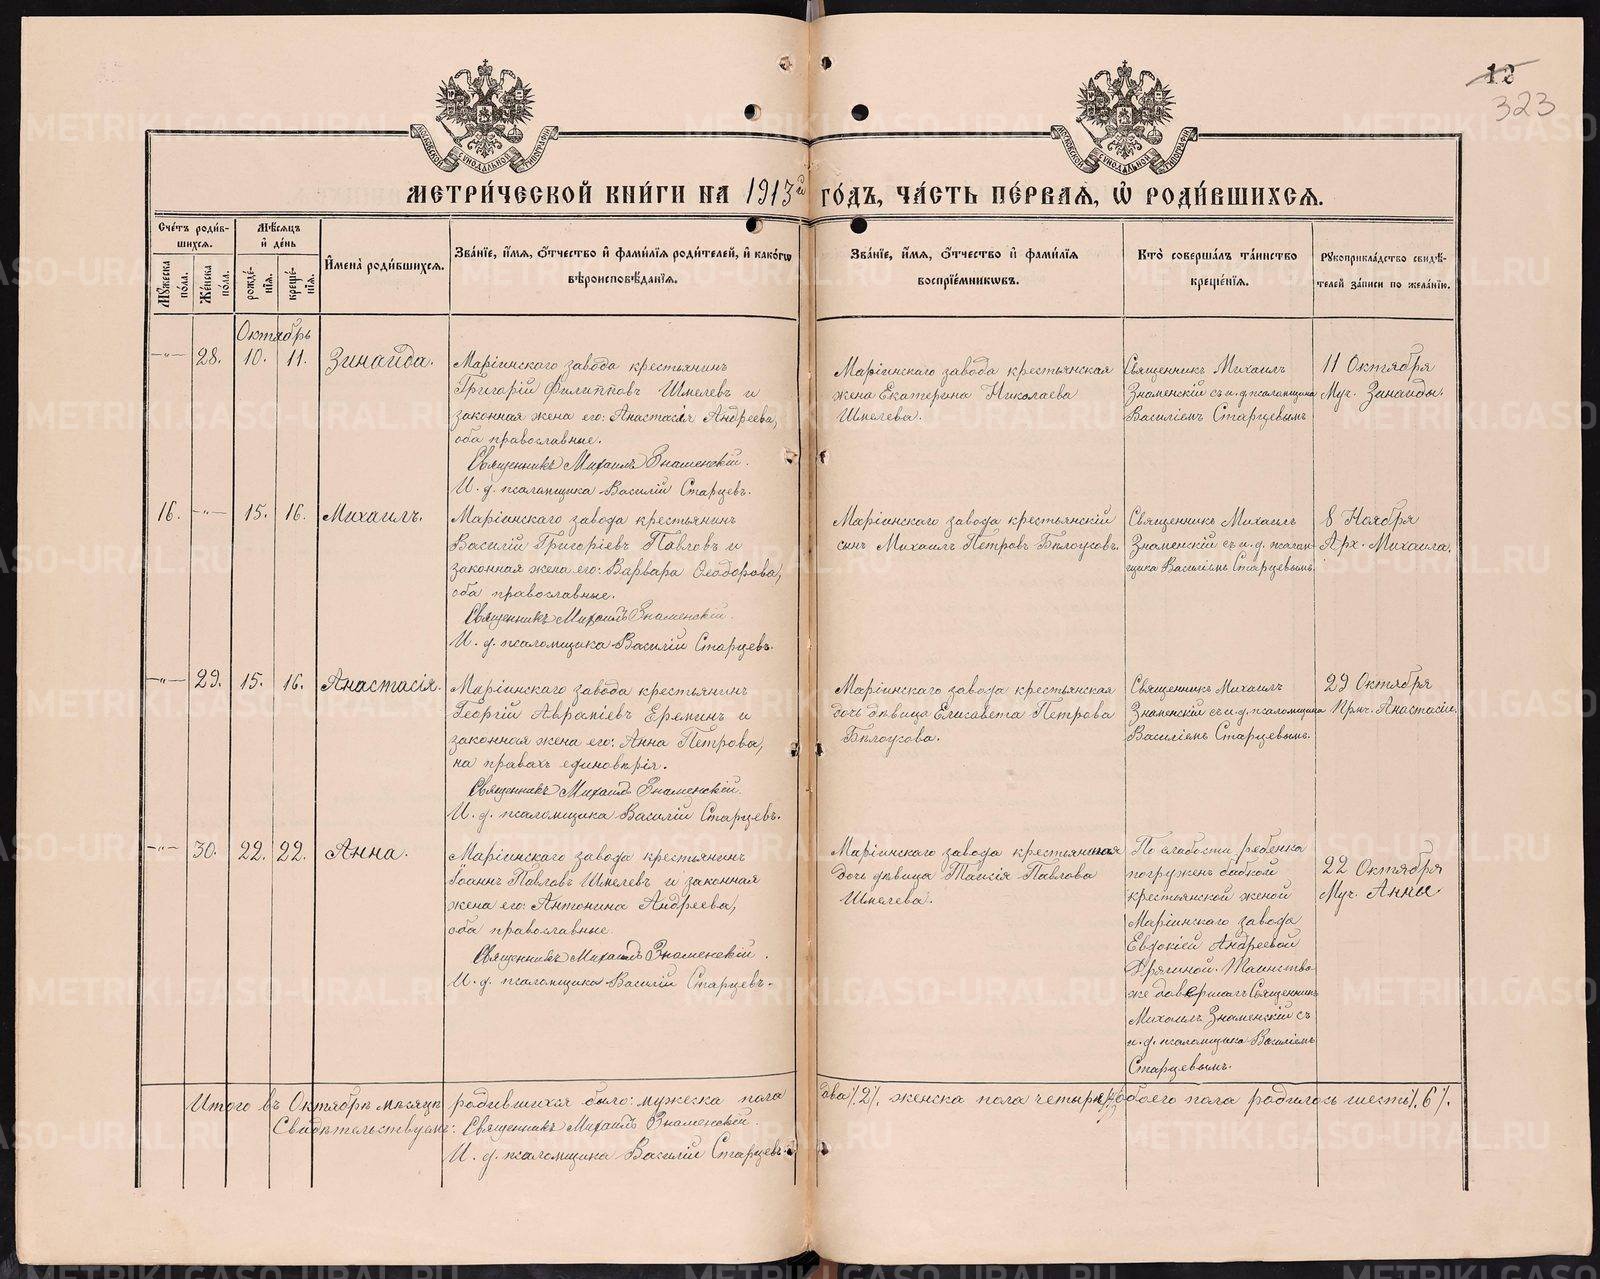 12
323
МОСКОВСКОЙ СѴНОДАЛЬНОЙ ТИПОГРАФІИ
МОСКОВСКОЙ СѴНОДАЛЬНОЙ ТИПОГРАФІИ
МЕТРИ́ЧЕСКОЙ КНИ́ГИ НА 1913й ГО́ДЪ, ЧА́СТЬ ПЕ́РВАЯ, Ѡ҆ РОДИ́ВШИХСЯ.
Сче́тъ роди́в-
шихся.
Мꙋ́жеска
по́ла.
Же́нска
по́ла.
Мѣ́сяцъ
и҆ де́нь
рожде́-
нїя.
креще́-
нїя.
И҆мена̀ роди́вшихся.
Зва́нїе, и҆́мя, ѻ҆́тчество и҆ фами́лїя роди́телей, и҆ како́гѡ
вѣроисповѣ́данїя.
Зва́нїе, и҆́мя, ѻ҆́тчество и҆ фами́лїя
воспрїе́мникѡвъ.
Кто̀ соверша́лъ та́инство
креще́нїя.
Рꙋкоприкла́дство свидѣ́-
телей за́писи по жела́нїю.
Октябрь
—„— 28. 10. 11. Зинаида.
Маріинскаго завода крестьянинъ
Григорій Филипповъ Шмелевъ и
законная жена его: Анастасія Андреева,
оба православные.
Священникъ Михаилъ Знаменскій.
И. д. псаломщика Василій Старцевъ.
Маріинскаго завода крестьянская
жена Екатерина Николаева
Шмелева.
Священникъ Михаилъ
Знаменскій съ и. д. псаломщика
Василіемъ Старцевымъ
11 Октября
Муч. Зинаиды.
16. —„— 15. 16. Михаилъ.
Маріинскаго завода крестьянинъ
Василій Григоріевъ Павловъ и
законная жена его: Варвара Ѳеодорова,
оба православные.
Священникъ Михаилъ Знаменскій.
И. д. псаломщика Василій Старцевъ.
Маріинскаго завода крестьянскій
сынъ Михаилъ Петровъ Бѣлоусовъ.
Священникъ Михаилъ
Знаменскій съ и. д. псалом-
щика Василіемъ Старцевымъ.
8 Ноября
Арх. Михаила.
—„— 29. 15. 16. Анастасія.
Маріинскаго завода крестьянинъ
Георгій Авраміевъ Ереминъ и
законная жена его: Анна Петрова,
на правахъ единовѣрія.
Священникъ Михаилъ Знаменскій.
И. д. псаломщика Василій Старцевъ.
Маріинскаго завода крестьянская
дочь дѣвица Елисавета Петрова
Бѣлоусова.
Священникъ Михаилъ
Знаменскій съ и. д. псаломщика
Василіемъ Старцевымъ.
29 Октября
Прмч. Анастасіи.
—„— 30. 22. 22. Анна.
Маріинскаго завода крестьянинъ
Іоаннъ Павловъ Шмелевъ и законная
жена его: Антонина Андреева,
оба православные.
Священникъ Михаилъ Знаменскій.
И. д. псаломщика Василій Старцевъ.
Маріинскаго завода крестьянская
дочь дѣвица Таисія Павлова
Шмелева.
По слабости ребенка
погруженъ бабкой
крестьянской женой
Маріинскаго завода
Евдокіей Андреевой
Таинство
же довершалъ Священникъ
Михаилъ Знаменскій съ
и. д. псаломщика Василіемъ
Старцевымъ.
22 Октября
Муч. Анны
Итого въ Октябрѣ мѣсяцѣ родившихся было: мужеска пола два /.2/. женска пола четыре /.4/. обоего пола родилось шесть /.6/.
Свидѣтельствуемъ: Священникъ Михаилъ Знаменскій.
И. д. псаломщика Василій Старцевъ.
METRIKI.GASO-URAL.RU